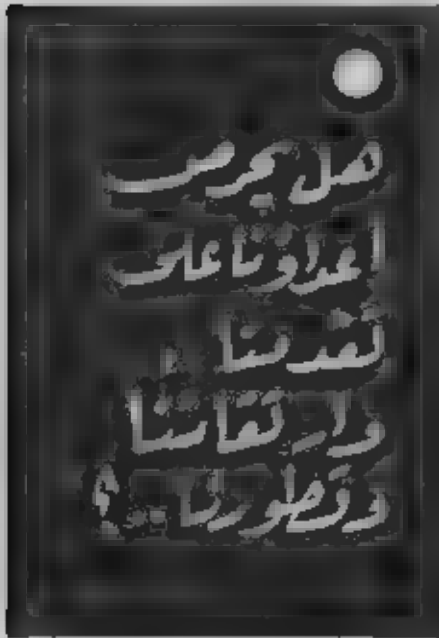 هل يحرص
أعداؤنا على
تقدمنا
وارتقائنا
وتطورنا ؟